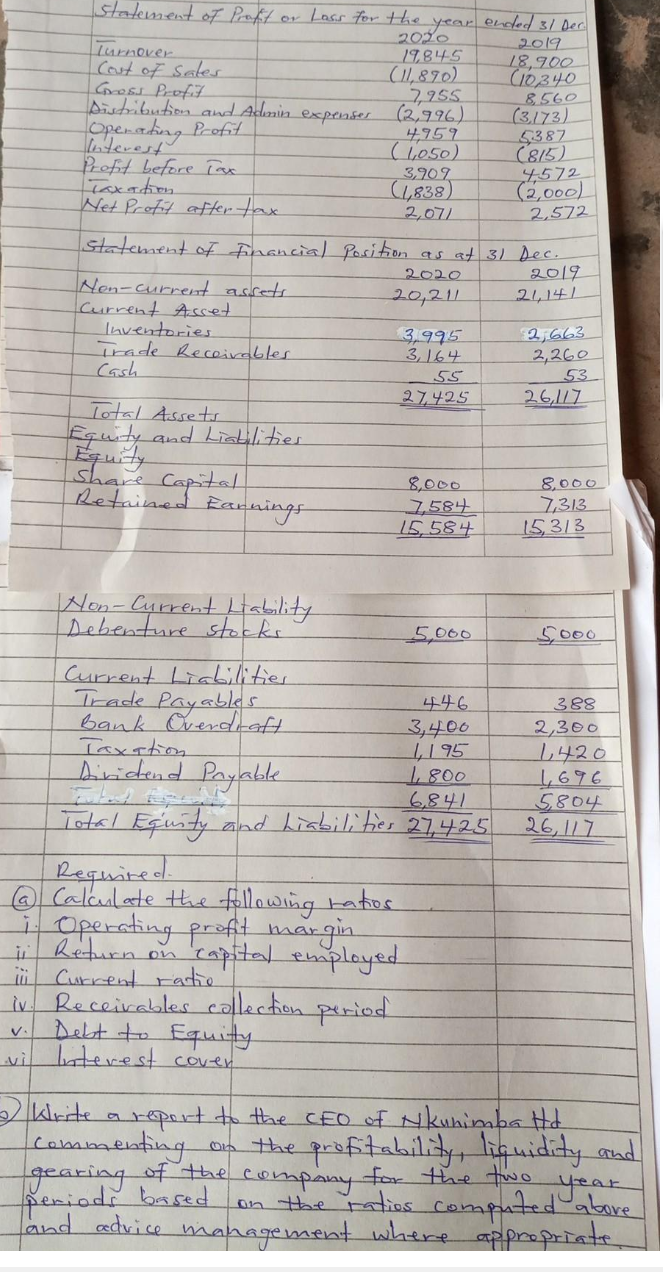 Statement of Profit or Loss for the year ended 31 Dec.
2020 2019
Turnover 19,845 18,900
Cost of Sales (11,890) (10,340
Gross Profit 7,955 8,560
Distribution and Admin expenses (2,996) (3,173)
Operating Profit 4,959 5,387
Interest (1,050) (815)
Profit before Tax 3,909 4,572
Taxation (1,838) (2,000)
Net Profit after tax 2,071 2,572
Statement of Financial Position as at 31 Dec.
2020 2019
Non-current assets 20,211 21,141
Current Asset
Inventories 3,995 2,663
Trade Receivables 3,164 2,260
Cash 55 53
27,425 26,117
Total Assets
Equity and Liabilities
Equity
Share Capital 8,000 8,000
Retained Earnings 7,584 7,313
15,584 15,313
Non-Current Liability
Debenture stocks 5,000 5,000
Current Liabilities
Trade Payables 446 388
Bank Overdraft 3,400 2,300
Taxation 1,195 1,420
Dividend Payable 1,800 1,696
6,841 5,804
Total Equity and Liabilities 27,425 26,117
Required.
a) Calculate the following ratios
i. Operating profit margin
ii Return on capital employed
iii Current ratio
iv. Receivables collection period
v. Debt to Equity
vi Interest cover
Write a report to the CEO of Nkunimba Ltd
commenting on the profitability, liquidity and
gearing of the company for the two year
periods based on the ratios computed above
and advice management where appropriate.